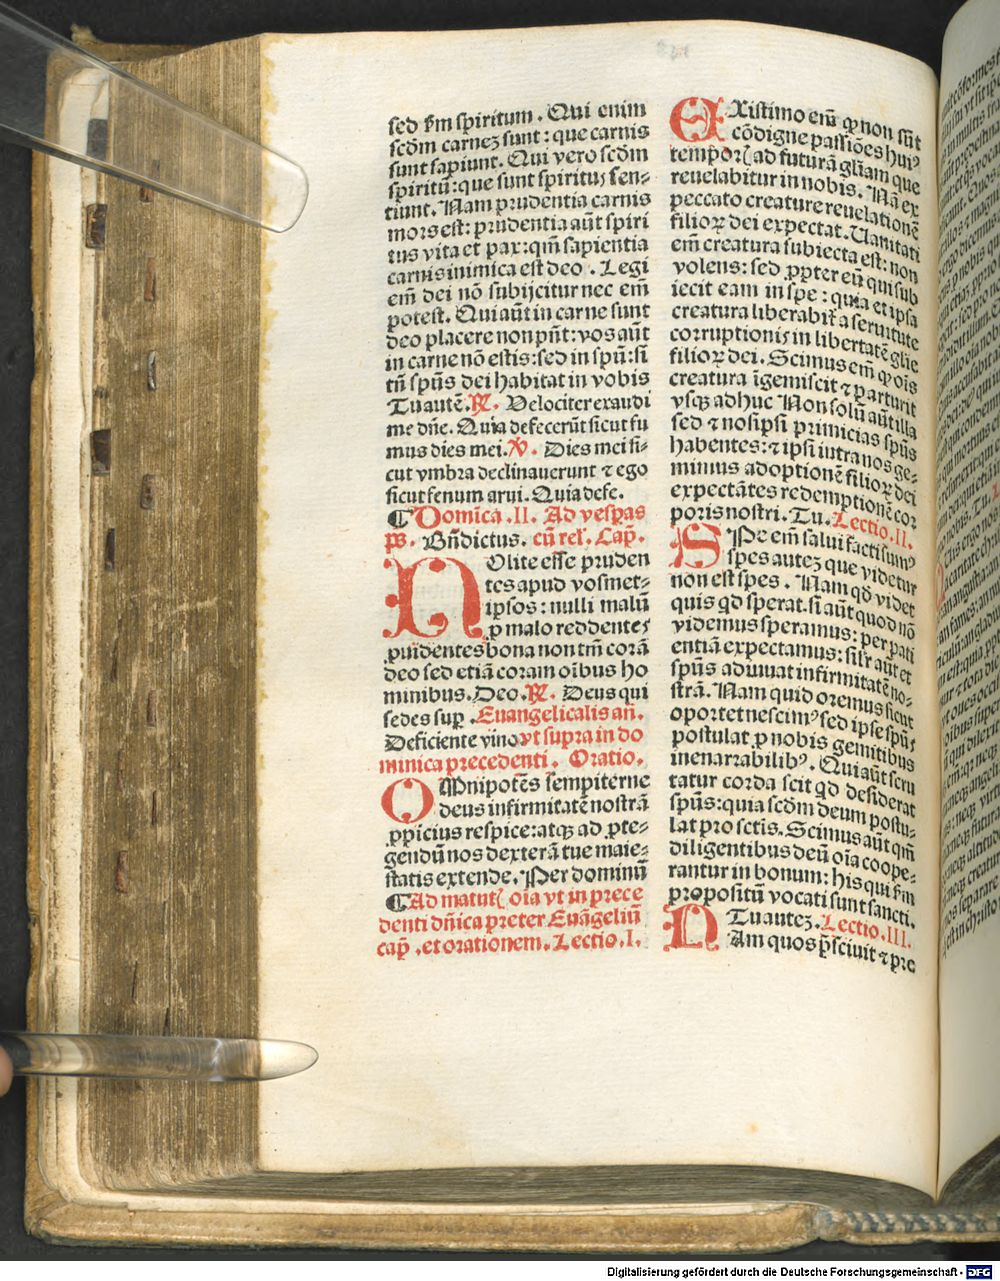 sed ẜm spiritum. Qui enim
scdm carneʒ sunt: que carnis
sunt sapiunt. Qui vero scdm
spiritū: que sunt spiritus sen-
tiunt. Nam prudentia carnis
mors est: prudentia aūt spiri
tus vita et pax: qm̄ sapientia
carnis inimica est deo. Legi
em̄ dei nō subijcitur nec em̄
potest. Qui aūt in carne sunt
deo placere non pn̄t: vos aūt
in carne nō estis: sed in spū: si
tn̄ spūs dei habitat in vobis
Tu autē. ℟. Velociter exaudi
me dn̄e. Quia defecerūt sicut fu
mus dies mei. ℣. Dies mei si-
cut vmbra declinauerunt ⁊ ego
sicut fenum arui. Quia defe.
¶ Domīca .II. Ad vesꝑas
ps. Bn̄dictus. cū rel'. Cap̄.
NOlite esse pruden
tes apud vosmet-
ipsos: nulli malū
ꝓ malo reddentes
ꝓuidentes bona non tm̄ corā
deo sed etiā coram oībus ho
minibus. Deo. ℟. Deus qui
sedes suꝑ. Euangelicalis an̄.
Deficiente vino vt supra in do
minica precedenti. Oratio.
OMnipotēs sempiterne
deus infirmitatē nostrā
ꝓpicius respice: atqꝫ ad ꝓte-
gendū nos dexterā tue maie-
statis extende. Per dominū
¶ Ad matut̄. oīa vt in prece
denti dn̄ica preter Euāgeliū
cap̄. et orationem. Lectio .I.
EXistimo em̄ ꝙ non sūt
cōdigne passiōes huiꝰ
temporꝝ ad futurā gl̄iam que
reuelabitur in nobis. Nā ex
peccato creature reuelationē
filioꝝ dei expectat. Uanitati
em̄ creatura subiecta est: non
volens: sed ꝓpter eū qui sub
iecit eam in spe: quia et ipsa
creatura liberabit̄ a seruitute
corruptionis in libertatē gl̄ie
filioꝝ dei. Scimus em̄ ꝙ oīs
creatura īgemiscit ⁊ parturit
vsqꝫ adhuc Non solū aūt illa
sed ⁊ nosipsi primicias spūs
habentes: ⁊ ipsi intra nos ge-
mimus adoptionē filioꝝ dei
expectātes redemptionē cor
poris nostri. Tu. Lectio .II.
SPe em̄ salui facti sumꝰ
spes auteʒ que videtur
non est spes. Nam qd̄ videt
quis qd̄ sperat. si aūt quod nō
videmus speramus: per pati
entiā expectamus: sil'r aūt et
spūs adiuuat infirmitatē no-
strā. Nam quid oremus sicut
oportet nescimꝰ sed ipse spūs
postulat ꝓ nobis gemitibus
inenarrabilibꝰ. Qui aūt scru
tatur corda scit qd̄ desiderat
spūs: quia scdm deum postu-
lat pro sctīs. Scimus aūt qm̄
diligentibus deū oīa coope-
rantur in bonum: his qui ẜm
propositū vocati sunt sancti.
Tu auteʒ. Lectio .III.
NAm quos p̄sciuit ⁊ pre
Digitalisierung gefördert durch die Deutsche Forschungsgemeinschaft - DFG